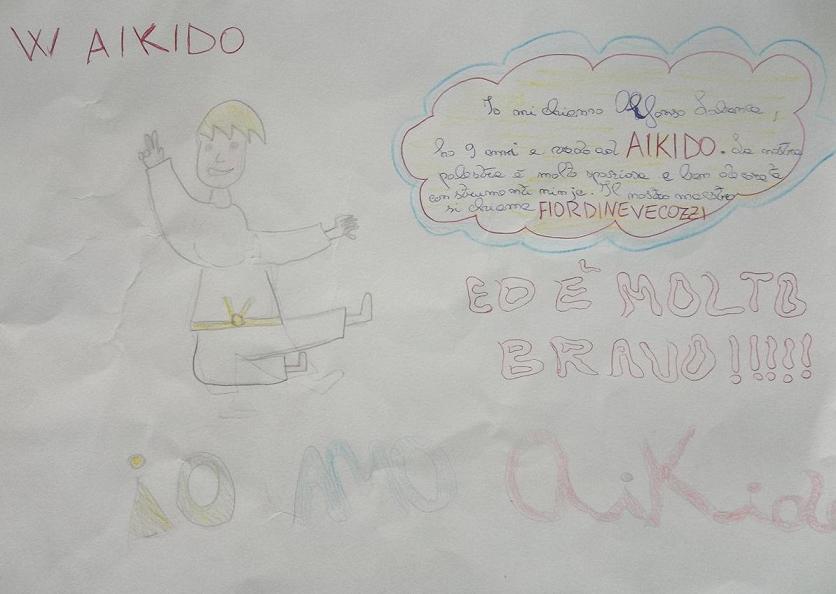 W AIKIDO
Io mi chiamo Alfonso
ho 9 anni e vado ad AIKIDO. La nostra
palestra è molto spaziosa e ben
con strumenti ninja. Il nostro maestro
si chiama FIORDINEVECOZZI
ED È MOLTO
BRAVO!!!!!
iO AMO AiKido